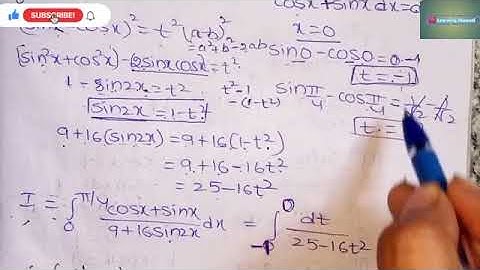 SUBSCRIBE
cosx+sinx dx=
(sinx-cosx)²=t² (a-b)²
=a²+b²-2ab
x=0
sin0-cos0=0-1
(sin²x+cos²x)-(2sinxcosx)=t²
t=-1
1-sin2x=t²
t²-1
-(1-t²)
sin π/4 - cos π/4 = 1/√2 - 1/√2
sin2x=1-t²
t=
9+16(sin2x)=9+16(1-t²)
=9+16-16t²
=25-16t²
I = ∫₀^π/4 cosx+sinx / 9+16sin2x dx = ∫₋₁^0 dt / 25-16t²